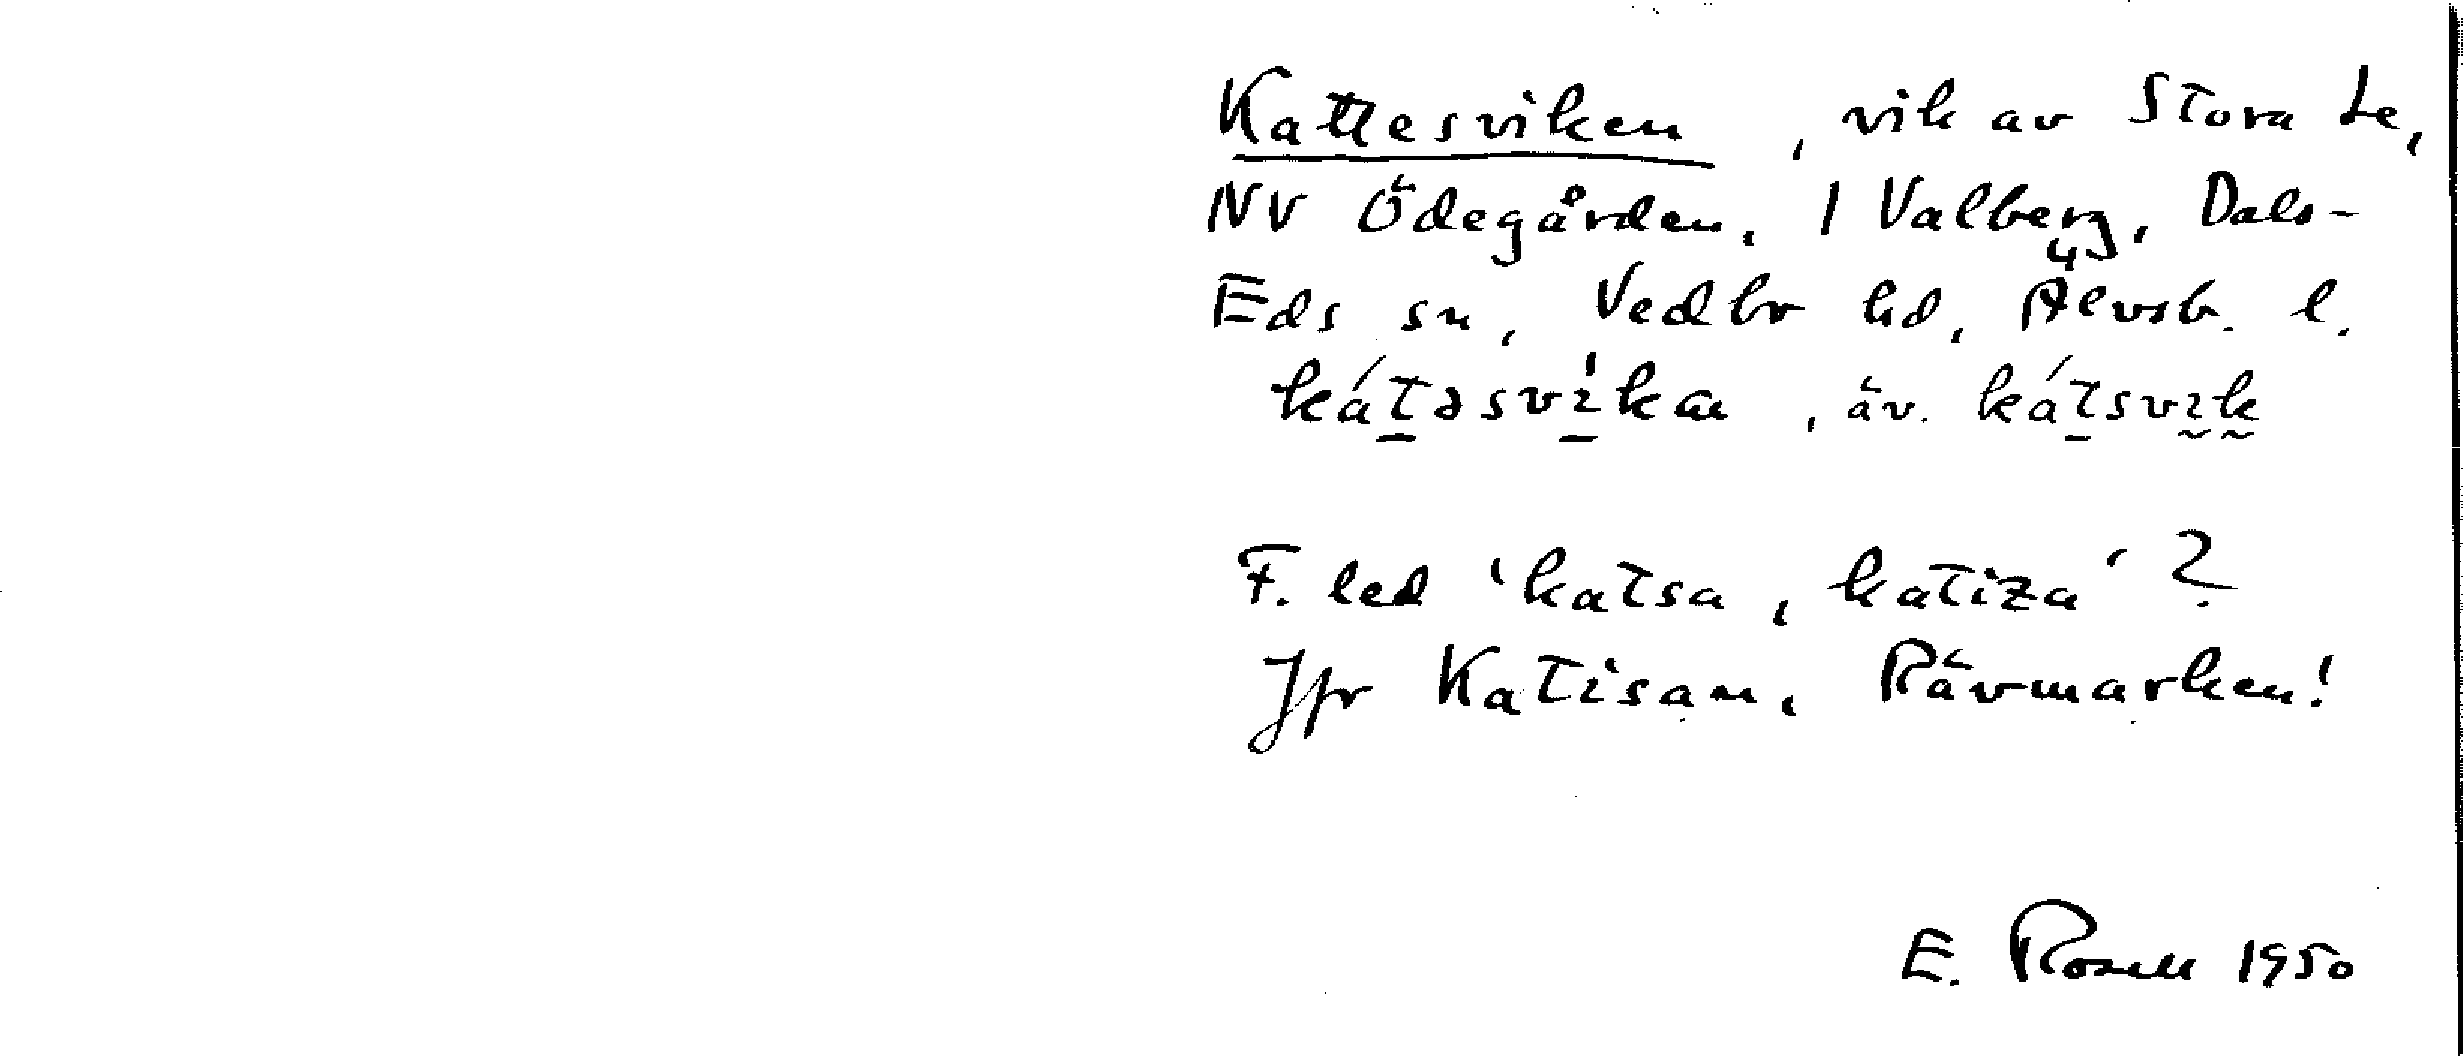 Kattesviken, vik av Stora Le,
NV Ödegården, 1 Valberg, Dals-
Eds sn, Vedbr hd, Älvsb. l.
kát̠əsvì̠kan, äv. kát̠svı̰k̰
F. led 'katsa, katiza'?
Jfr Katisan, Rävmarken!
E. Rosell 1950